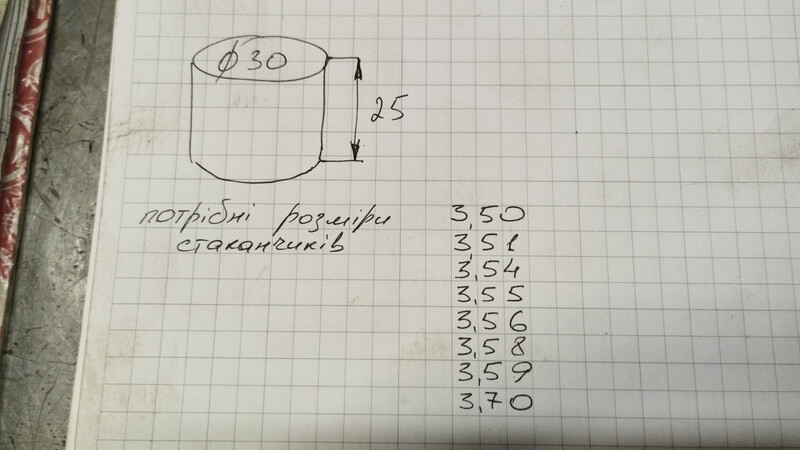 ϕ30
25
потрібні розміри
стаканчиків
3,50
3,51
3,54
3,55
3,56
3,58
3,59
3,70